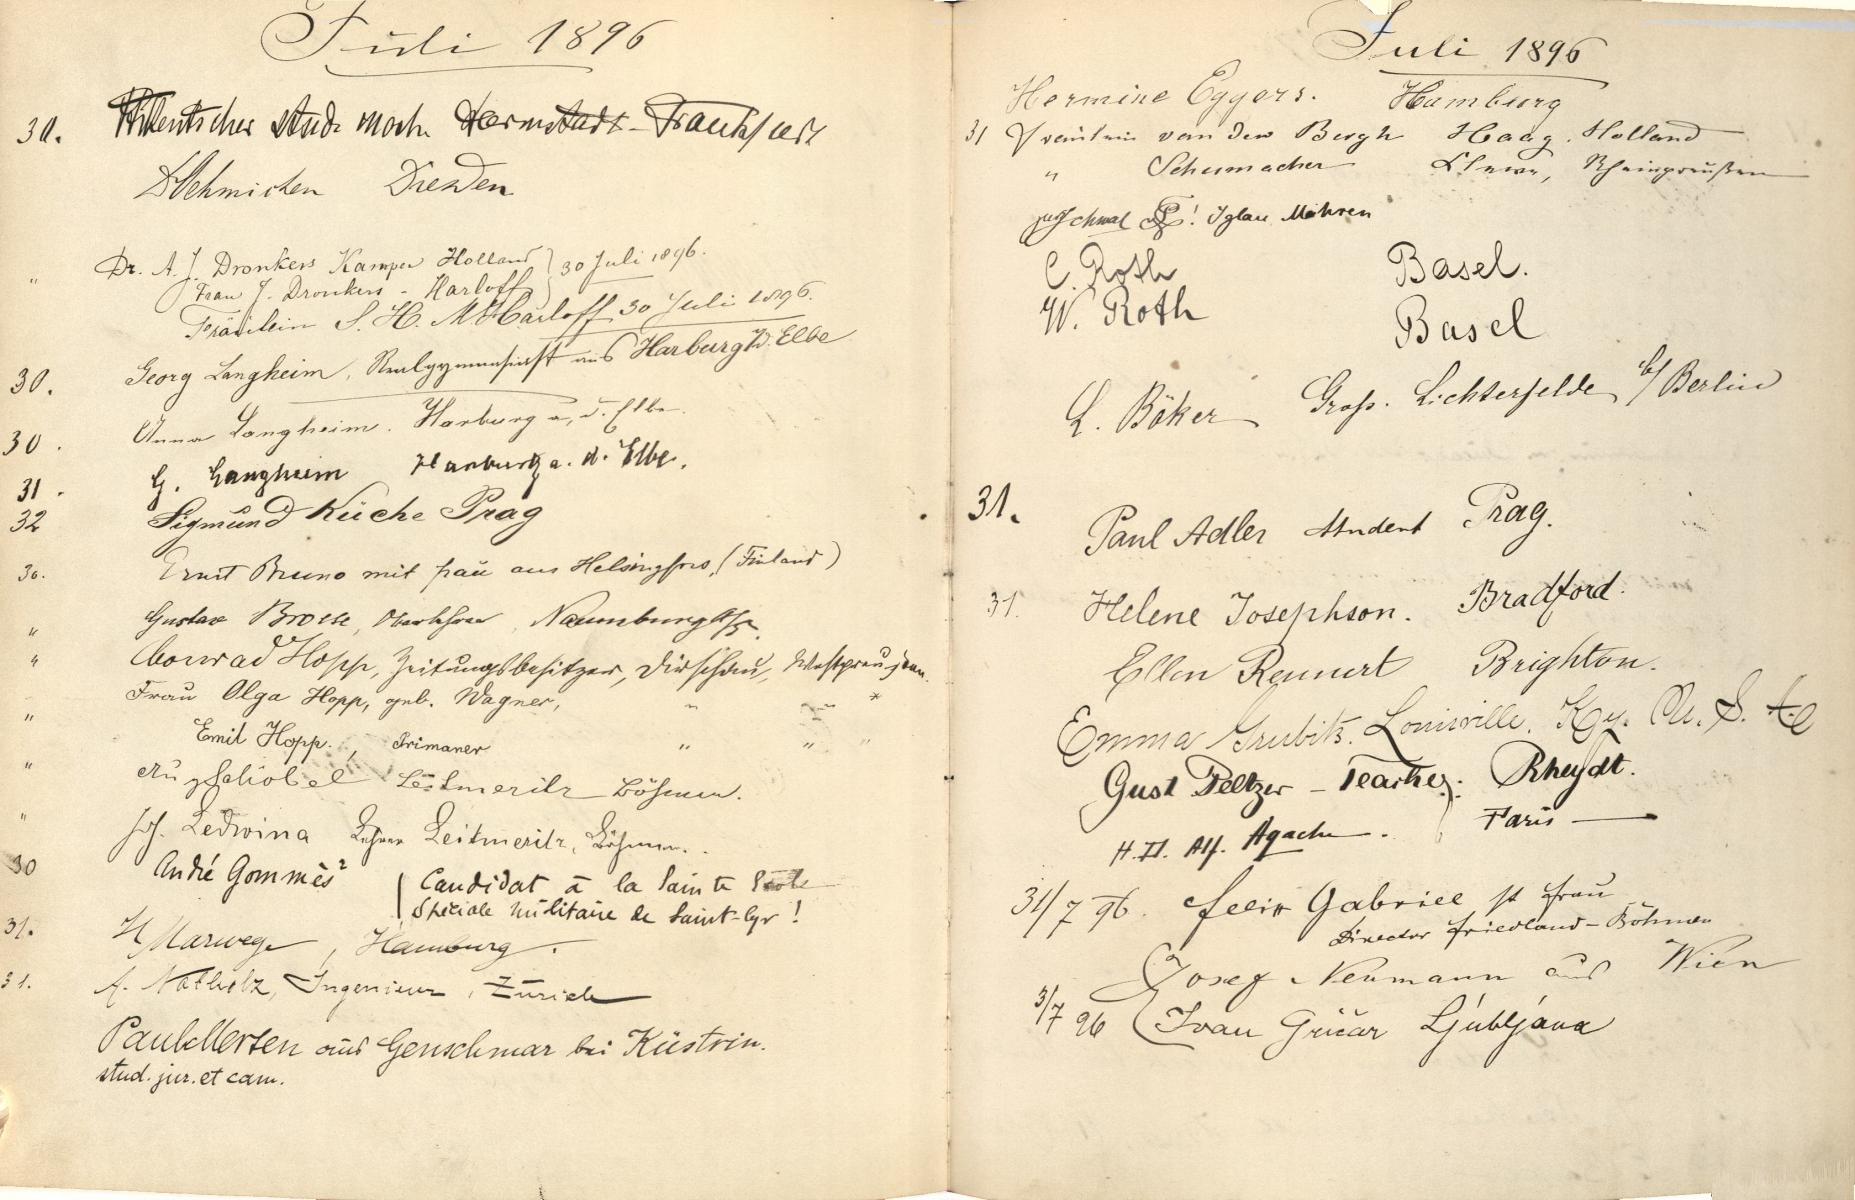 Juli 1896
30. stud. mach. Darmstadt-Frankfurt
Oehmichen Dresden
" Dr. A. J. Dronkers Kampen Holland } 30 Juli 1896.
Frau J. Dronkers - Harloff
Fräulein S. H. M. Harloff 30 Juli 1896.
30. Georg Langheim, Realgymnasiast aus Harburg a. d. Elbe
30. Anna Langheim. Harburg a. d. Elbe.
31. G. Langheim Harburg a. d. Elbe.
32 Sigmund Küche Prag
30. Ernst Bruno mit frau aus Helsingfors, (Finland)
" Gustav Naumburg
" Conrad Hopp, Zeitungsbesitzer, Dirschau, Westpreußen.
" Frau Olga Hopp, geb. Wagner, " " "
Emil Hopp, Primaner " " "
" Leitmeritz Böhmen.
" Jos. Ledwina Lehrer Leitmeritz, Böhmen.
30 André Gommès² ( Candidat à la Sainte Ecole
Spéciale militaire de Saint-Cyr !
31. H Marwege, Hamburg.
31. A. Notholz, Ingenieur, Zürich
Paul Merten aus Genschmar bei Küstrin.
stud. jur. et cam.
Juli 1896
Hermine Eggers. Hamburg
31 Fräulein van den Bergh Haag. Holland
" Schumacher Cleve, Rheinpreußen
Iglau Mähren
C. Roth Basel.
W. Roth Basel
L. Böker Groß. Lichterfelde b/ Berlin
31. Paul Adler Student Prag.
31. Helene Josephson. Bradford.
Ellen Rennert Brighton.
Emma Grubitz. Louisville. Ky. U. S. A
Gust Peltzer - Rheydt.
H. D. Alf. Agache. Paris
31/7 96. Felix Gabriel st frau
Director Friedland-Böhmen
Josef Neumann aus Wien
31/7 96 Ivan Gričar Ljubljana